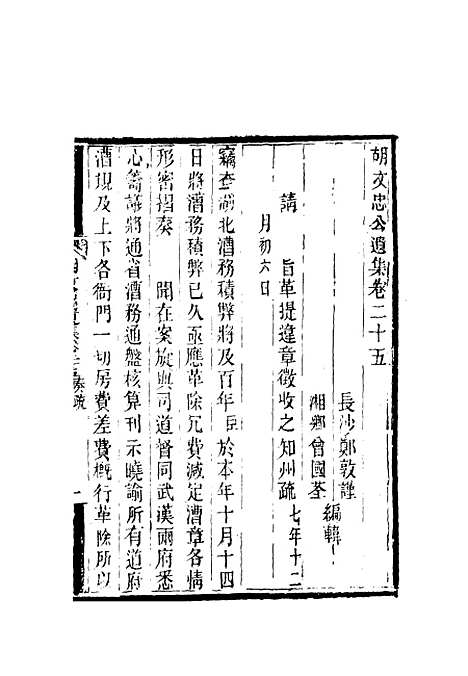 胡文忠公遺集卷二十五
長沙鄭敦謹
湘鄉曾國荃
編輯
請
旨革提違章徵收之知州疏 七年十二
月初六日
竊查湖北漕務積弊將及百年臣於本年十月十四
日將漕務積弊已久亟應革除冗費減定漕章各情
形密摺奏
聞在案旋與司道督同武漢兩府悉
心籌議將通省漕務通盤核算刊示曉諭所有道府
漕規及上下各衙門一切房費差費概行革除所以
奏疏
一